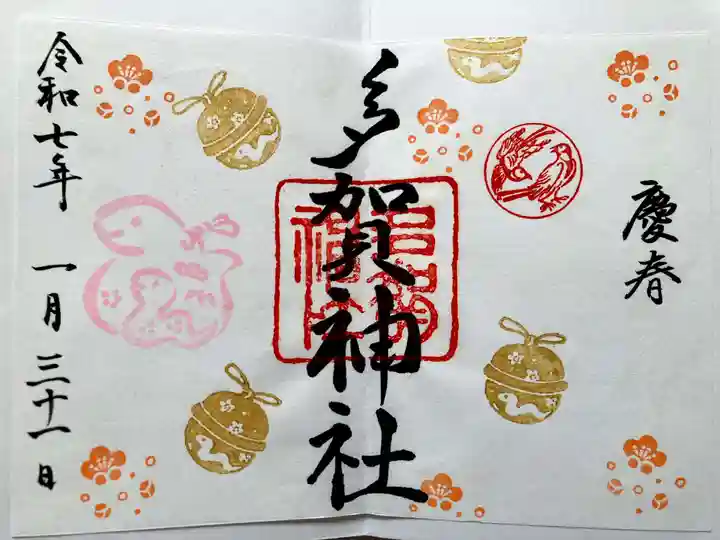 慶春
多賀神社
令和七年 一月 三十一日